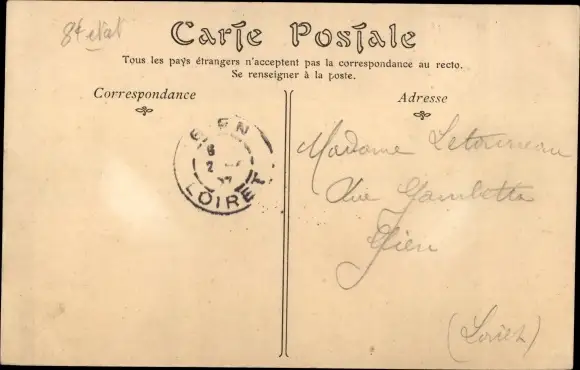 8t état
Carte Postale
Tous les pays étrangers n'acceptent pas la correspondance au recto.
Se renseigner à la poste.
Correspondance
Adresse
GIEN
LOIRET
Madame Letourneau
Rue Gambetta
Gien
(Loiret)